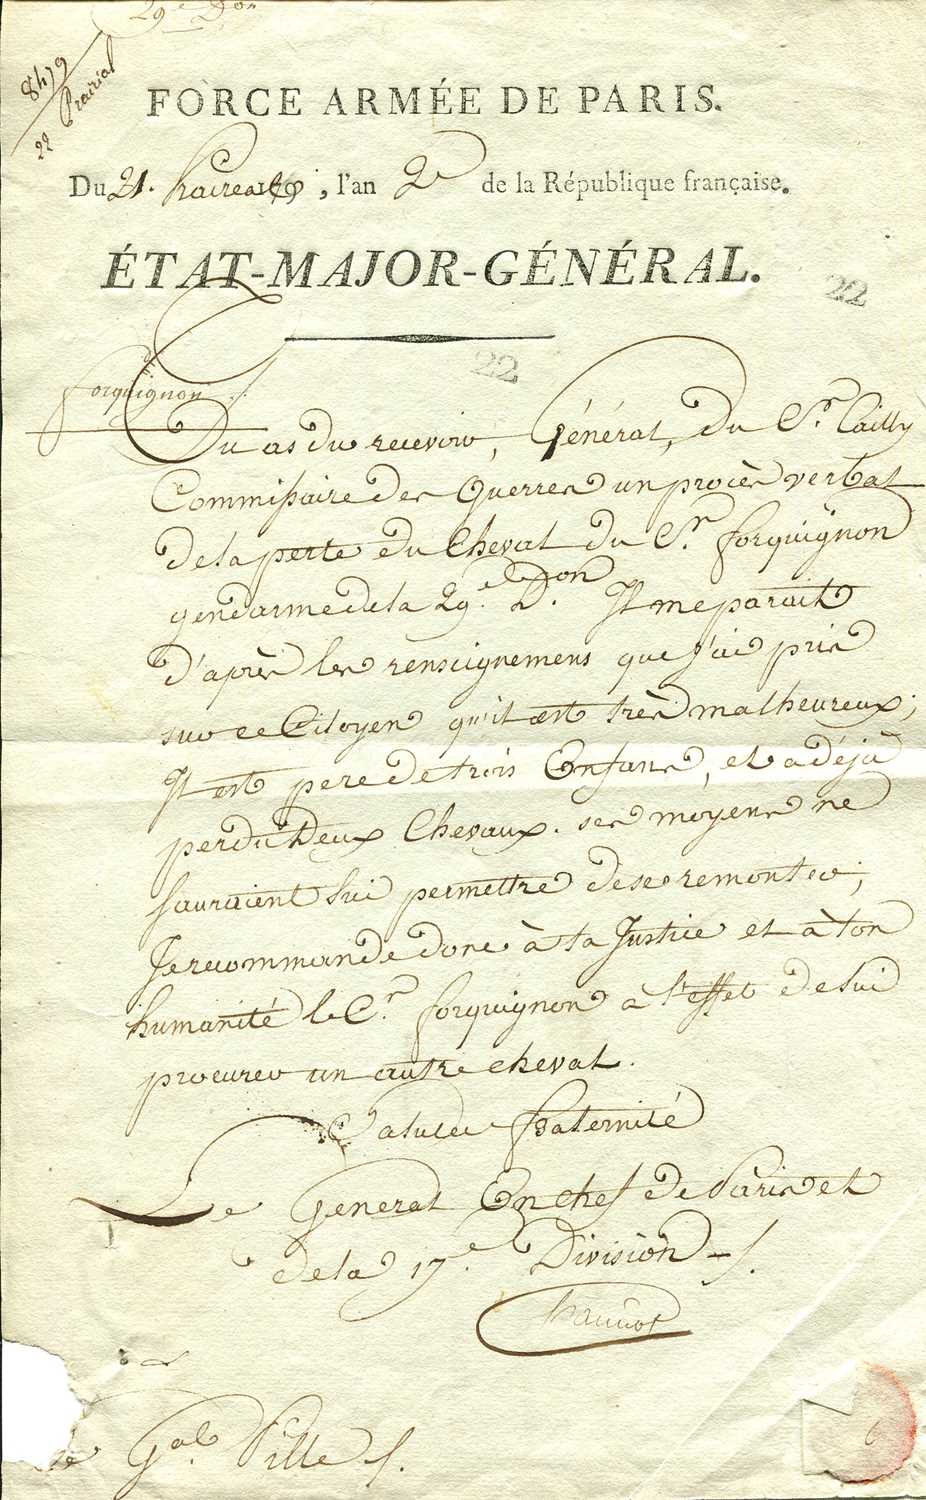 29e Don
8479
22 Prairial
FORCE ARMÉE DE PARIS.
Du 21. Prairéal, l'an 2e de la République française.
ÉTAT-MAJOR-GÉNÉRAL.
22
22
forquignon
Tu as du recevoir, Général, du Cn. Cailly
Commissaire des Guerres un procès verbal
de la perte du Cheval du Cn. forquignon
gendarme de la 29e. Don. Il me parait
d'après les renseignemens que j'ai pris
sur ce Citoyen qu'il est très malheureux;
Il est pere de trois Enfans, et a déjà
perdu Deux Chevaux. ses moyens ne
sauraient lui permettre de se remonter;
Je recommande donc à ta Justice et à ton
humanité le Cn. forquignon à l'effet de lui
procurer un autre cheval.
Salut et fraternité
Le General En chef de Paris et
de la 17e. Division
hanriot
Gal. Ville
6